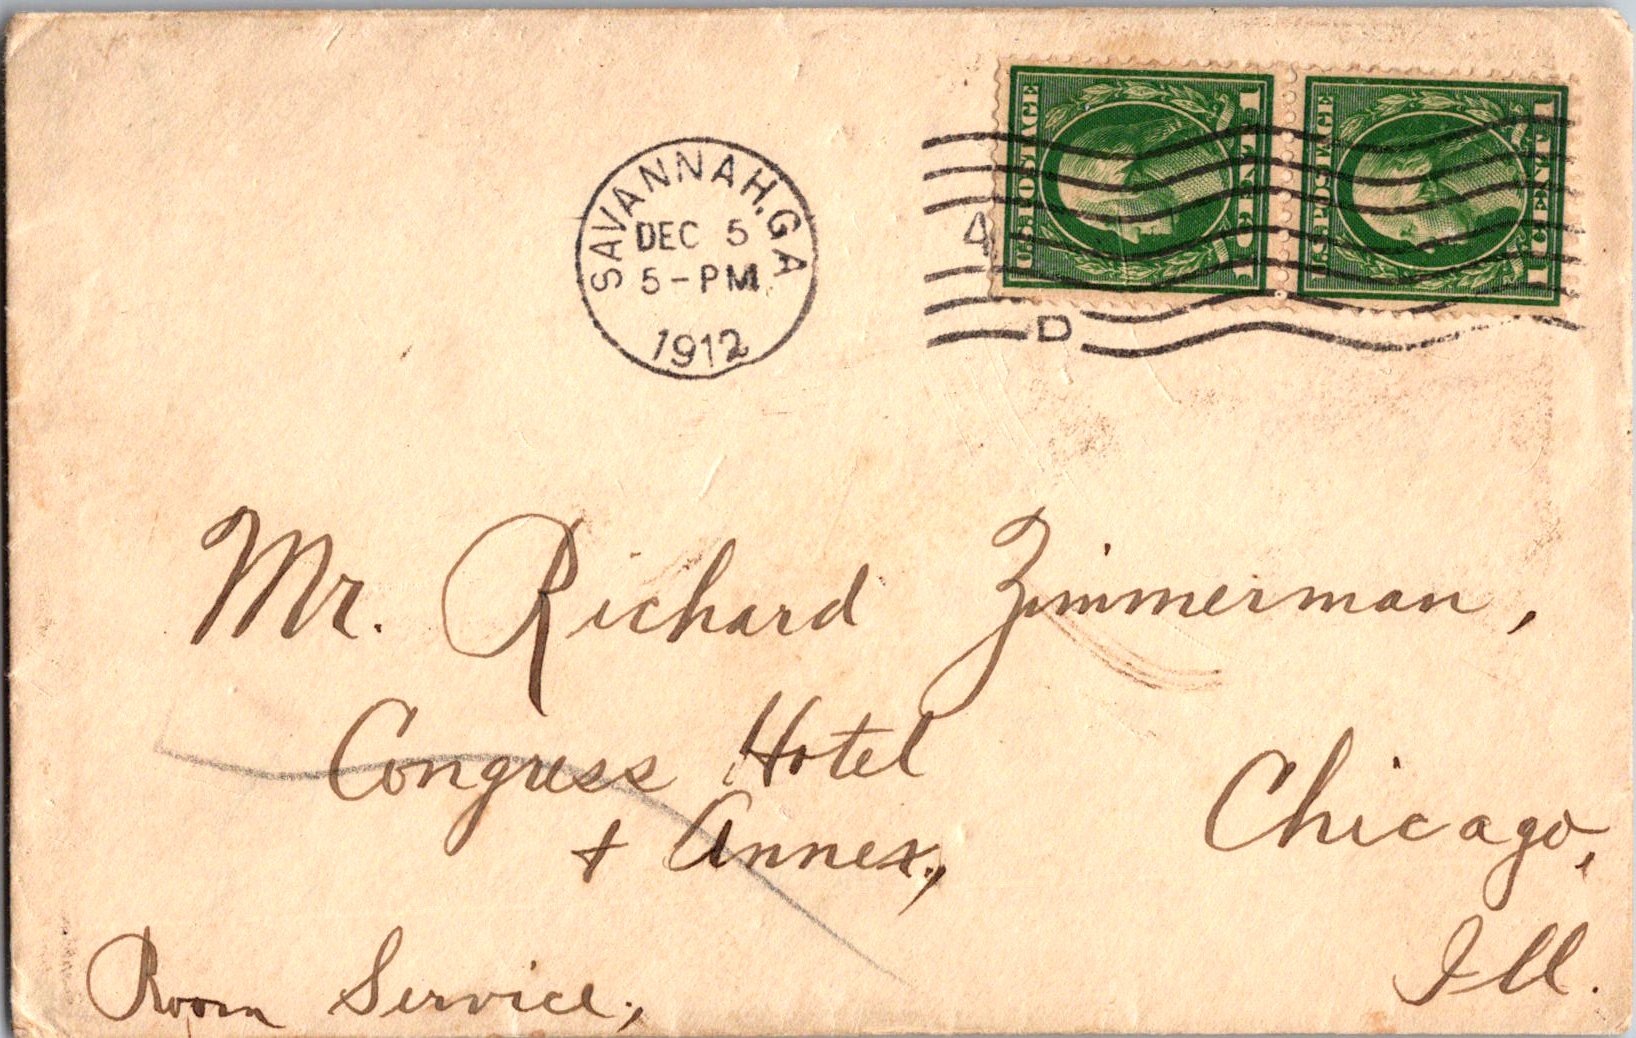 SAVANNAH, GA
DEC 5
5-PM
1912
4
D
U.S. POSTAGE
1 CENT 1
U.S. POSTAGE
1 CENT 1
Mr. Richard Zimmerman,
Congress Hotel
+ Annex,
Chicago,
Ill.
Room Service,